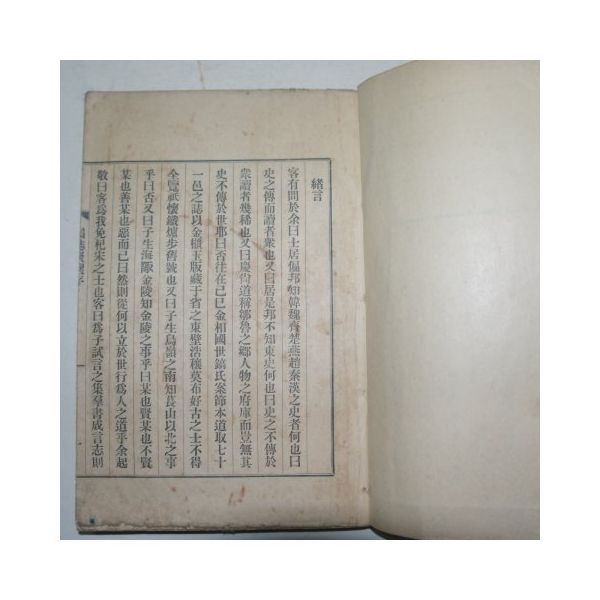 緖言
客有問於余曰士居偏邦知韓魏齊楚燕趙秦漢之史者何也曰
史之傳而讀者衆也又曰居是邦不知東史何也曰史之不傳於
衆讀者幾稀也又曰慶尙道稱鄒魯之鄕人物之府庫而豈無其
史不傳於世耶曰否往在己巳金相國世鎬氏案節本道取七十
一邑之誌以金櫃玉版藏于省之東壁浩穰莫布好古之士不得
全覽祇懷鐵爐步舊號也又曰子生鳥嶺之南知莨山以北之事
乎曰否又曰子生海陬金陵知金陵之事乎曰某也賢某也不賢
某也善某也惡而已曰然則從何以立於世行爲人之道乎余起
敬曰客爲我免杞宋之士也客曰爲子試言之集羣書成言志則